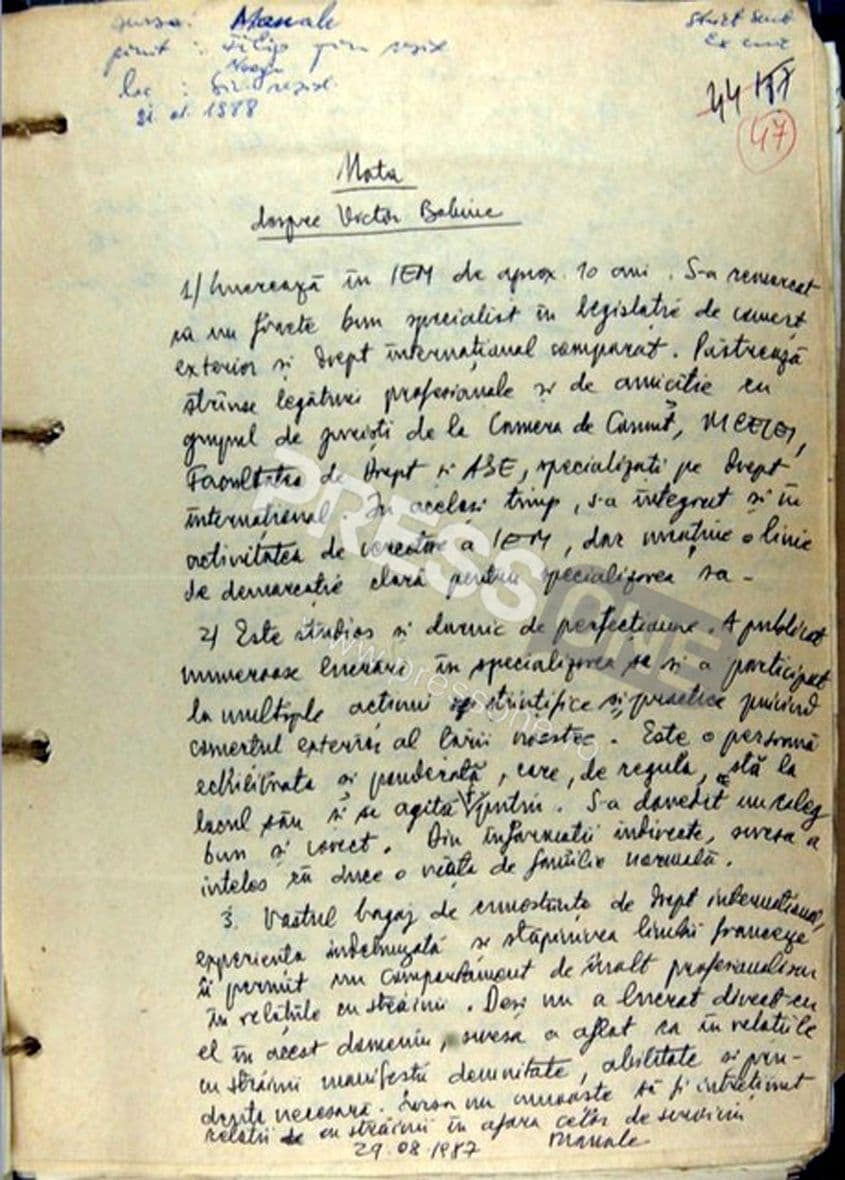 sursa: Manole
primit: Filip
loc:
1988
Strict Secret
Ex unic
44
47
Nota
despre Victor Babiuc
1/ Lucrează în IEM de aprox. 10 ani. S-a remarcat
ca un foarte bun specialist în legislație de comerț
exterior și drept internațional comparat. Păstrează
strînse legături profesionale și de amiciție cu
grupul de juriști de la Camera de Comerț, MCECEI,
Facultatea de Drept și ASE, specializați pe drept
internațional. In același timp, s-a integrat și în
activitatea de cercetare a IEM, dar menține o linie
de demarcație clară pentru specializarea sa.
2/ Este studios și dornic de perfecțiune. A publicat
numeroase lucrări în specializarea sa și a participat
la multiple acțiuni științifice și practice privind
comertul exterior al țării noastre. Este o persoană
echilibrata și ponderată, care, de regula, stă la
locul său și se agită puțin. S-a dovedit un coleg
bun și corect. Din informatii indirecte, sursa a
inteles că duce o viață de familie normală.
3. Vastul bagaj de cunostințe de drept international,
experienta indelungată și stăpinirea limbii franceze
îi permit un comportament de înalt profesionalism
în relațiile cu străinii. Desi nu a lucrat direct cu
el în acest domeniu, sursa a aflat ca în relatiile
cu străinii manifestă demnitate, abilitate si pru-
dența necesară. Sursa nu cunoaste să fi intreținut
relatii cu străinii în afara celor de serviciu
29.08.1987 Manole
PRESSONE
www.pressone.ro